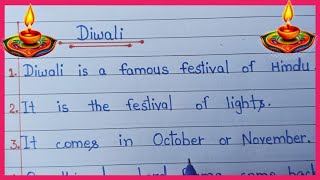 Diwali
1. Diwali is a famous festival of Hindu
2. It is the festival of lights.
3. It comes in October or November.